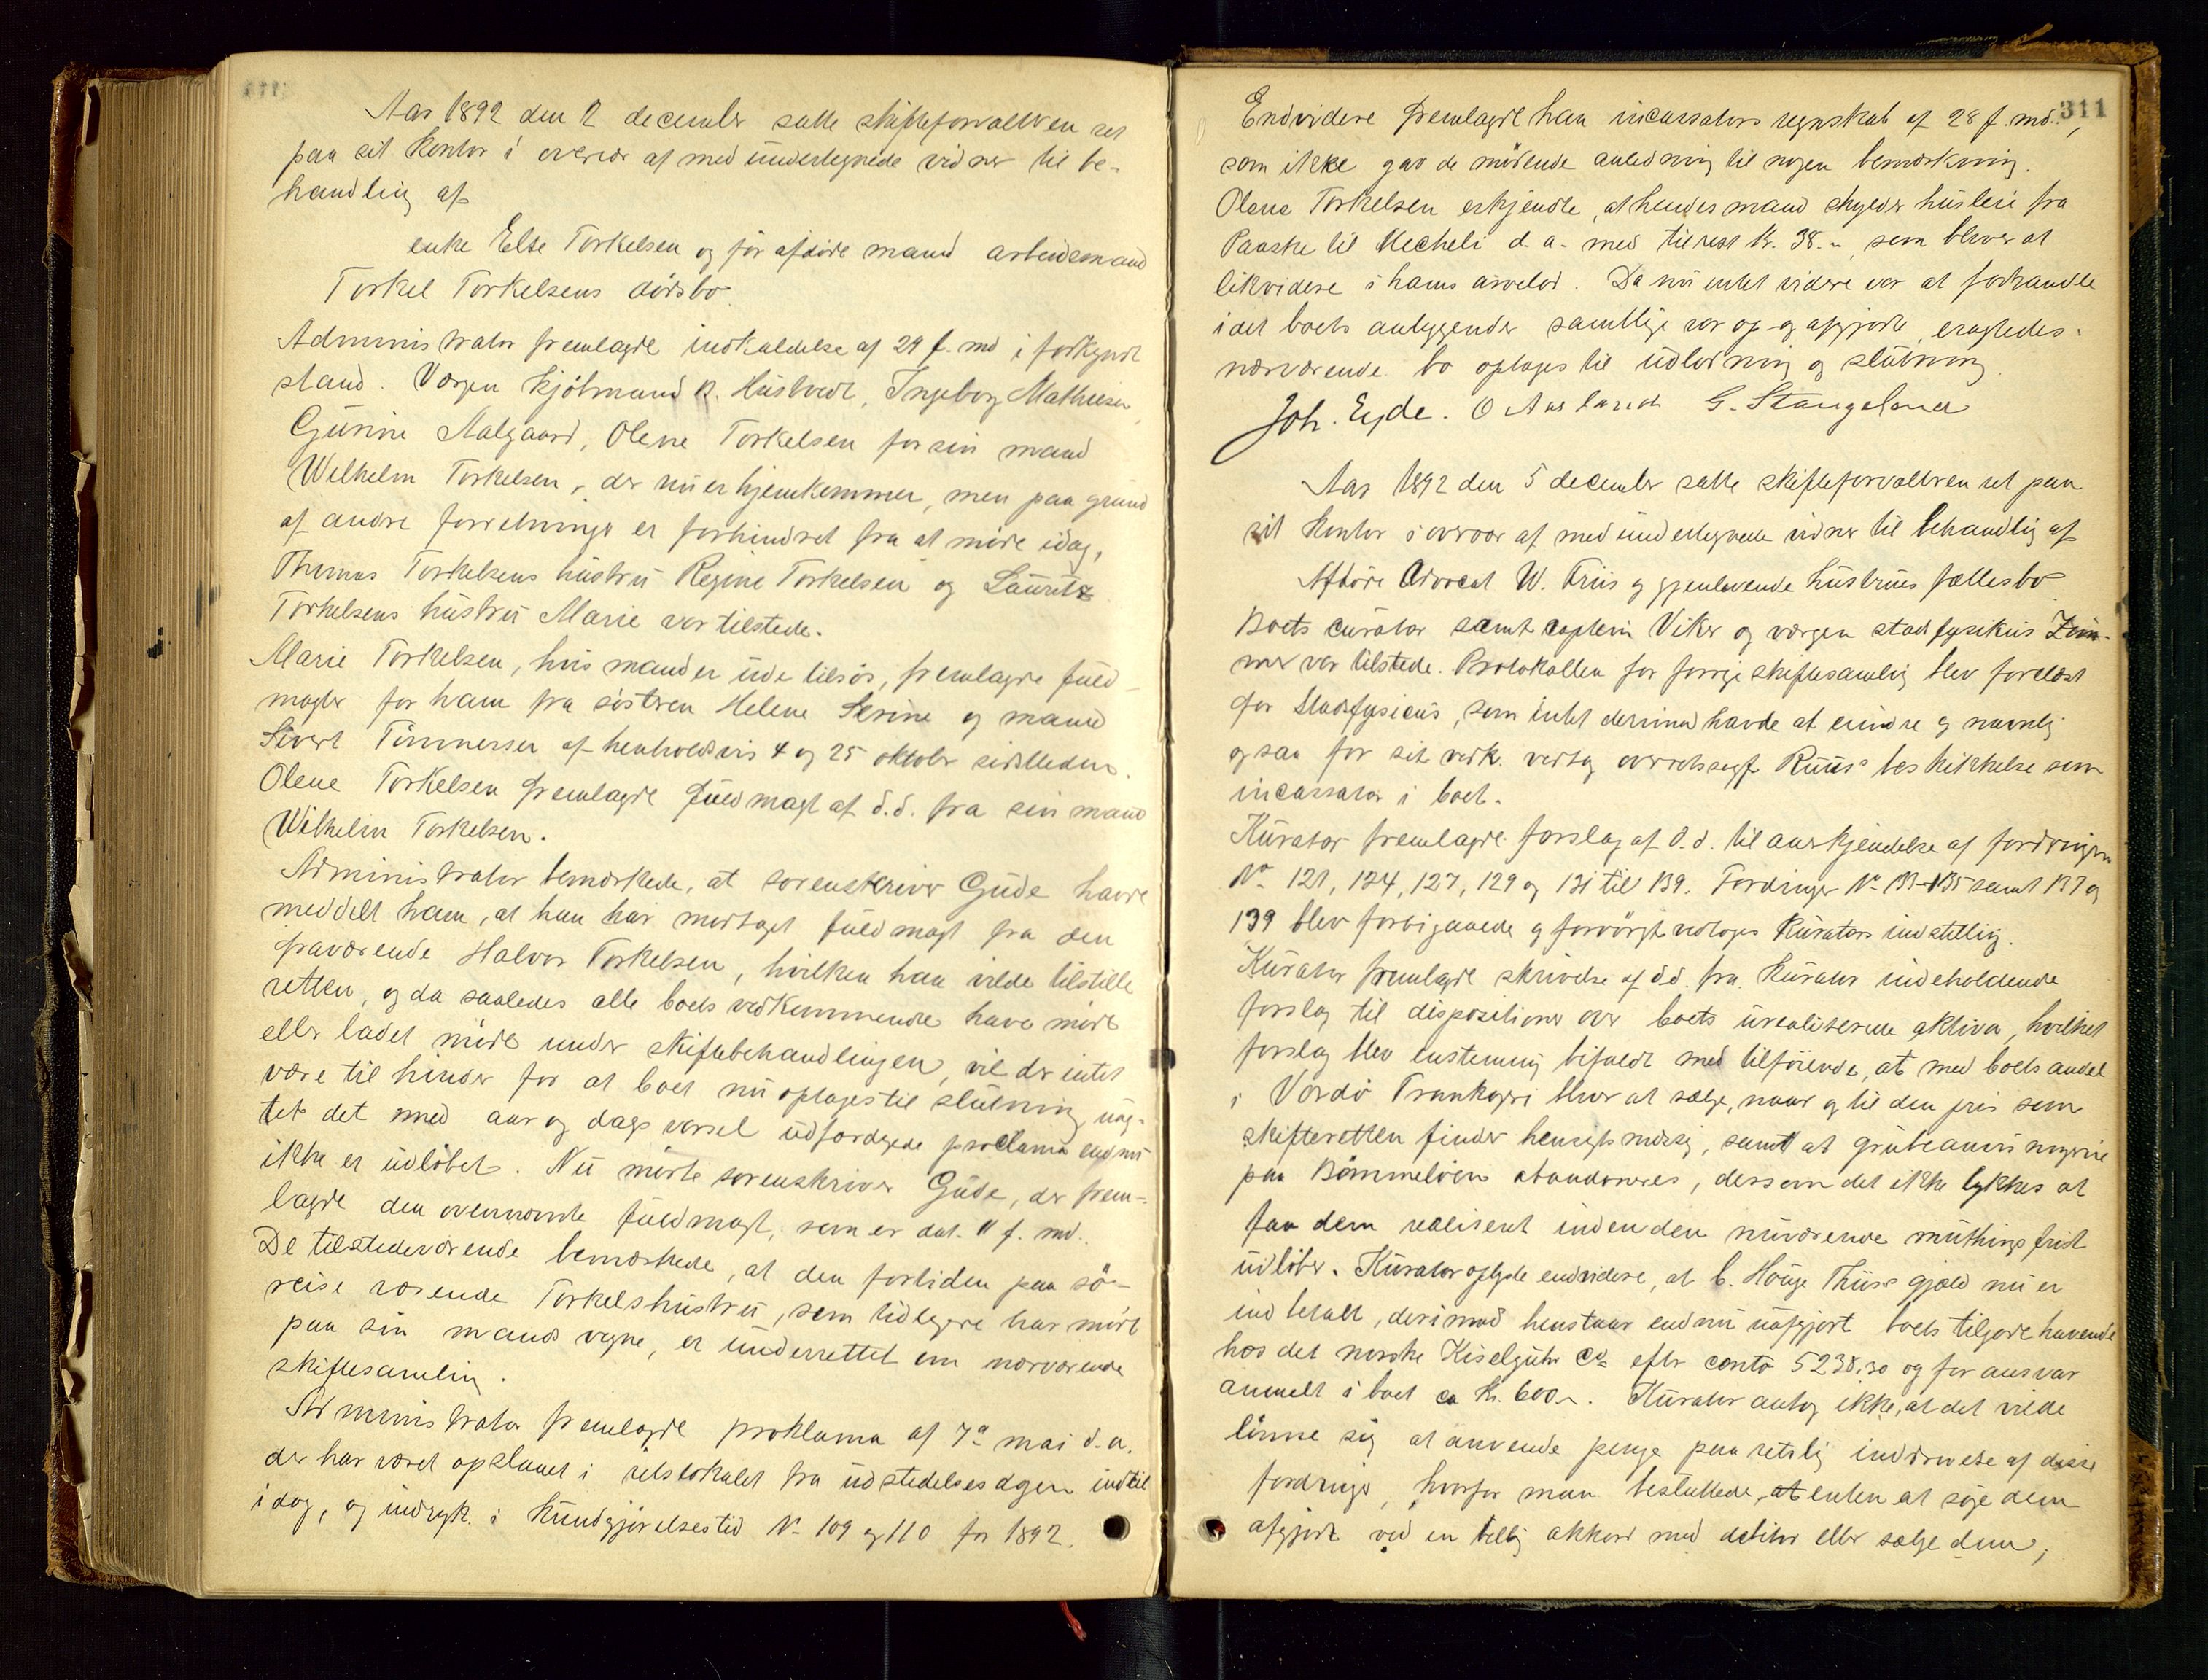 Aar 1892 den 2 december satte skifteforvalteren ret
paa sit kontor i overvær af medundertegnede vidner til be-
handling af
enke Else Torkelsen og før afdøde mand arbeidsmand
Torkel Torkelsens dødsbo.
Administrator fremlagde indkaldelse af 29 f. md i forkyndt
stand. Værgen Skjölmand R. Hustvedt, Ingeborg Mathiesen,
Gurine Aalgaard, Olene Torkelsen for sin mand
Wilhelm Torkelsen, der nu er hjemkommen, men paa grund
af andre forretninger er forhindret fra at møde idag,
Thomas Torkelsens hustru Regine Torkelsen og Lauritz
Torkelsens hustru Marie var tilstede.
Marie Torkelsen, hvis mand er ude tilsøs, fremlagde fuld-
magter for ham fra søsteren Helene Serine og mand
Sivert Tönnersen af henholdsvis 4 og 25 oktober sidstleden.
Olene Torkelsen fremlagde fuldmagt af d.d. fra sin mand
Wilhelm Torkelsen.
Administrator bemærkede, at sorenskriver Gude havde
meddelt ham, at han har modtaget fuldmagt fra den
fraværende Halvor Torkelsen, hvilken han vilde tilstille
retten, og da saaledes alle boets vedkommende have mødt
eller ladet møde under skiftebehandlingen, vil der intet
være til hinder for at boet nu optages til slutning uag-
tet det med aar og dags varsel udfærdigede proclama endnu
ikke er udløbet. Nu mødte sorenskriver Gude, der frem-
lagde den ovennævnte fuldmagt, som er dat. 11 f. md.
De tilstedeværende bemærkede, at den fortiden paa sö-
reise værende Torkels hustru, som tidligere har mødt
paa sin mands vegne, er underrettet om nærværende
skiftesamling.
Administrator fremlagde proklama af 7de mai d.a.
der har været opslaaet i retslokalet fra udstedelsesdagen indtil
idag, og indryk. i Kundgjørelsestid No 109 og 110 for 1892.
311
Endvidere fremlagde han incassators regnskab af 28 f. md.,
som ikke gav de mødende anledning til nogen bemærkning.
Olene Torkelsen erkjendte, at hendes mand skylder husleie fra
Paaske til Mecheli d.a. med tilrest kr. 38.-, som bliver at
likvidere i hans arvelod. Da nu intet videre var at forhandle
idet boets anliggender samtlige var op- og afgjorte, eragtedes
nærværende bo optages til udlodning og slutning.
Joh. Eyde. O Aasland G. Stangeland
Aar 1892 den 5 december satte skifteforvalteren ret paa
sit kontor i overvær af medundertegnede vidner til behandlig af
Afdöde Advocat W. Friis og gjenlevende hustrues fællesbo
Boets curator samt captein Viker og værgen stadfysikus Zim-
mer var tilstede. Protokollen for forrige skiftesamling blev forelæst
for Stadsfysicus, som intet derimod havde at erindre og navnlig
ogsaa for sit vedk. vedtog overretssagf. Ruus's beskikkelse som
incassator i boet.
Kurator fremlagde forslag af d.d. til anerkjendelse af fordringer
No 121, 124, 127, 129 og 131 til 139. Fordringer No 133-135 samt 137 og
139 blev forbigaaede og forøvrigt vedtoges kurators indstilling.
Kurator fremlagde skrivelse af d.d. fra kurator indeholdende
forslag til dispositioner over boets urealiserede aktiva, hvilket
forslag blev enstemmig bifaldt med tilföiende, at med boets andel
i Vardö Trankogeri bliver at sælge, naar og til den pris som
skifteretten finder hensigtsmæssig, samt at grubeanvisningerne
paa Bömmelöen abandoneres, dersom det ikke lykkes at
faa dem realiseret inden den nuværende muthingsfrist
udløber. Kurator oplyste endvidere, at C. Houge Thiis's gjæld nu er
indbetalt, derimod henstaar endnu uafgjort boets tilgodehavende
hos det norske Kiselguhr Co efter conto 5238,30 og for ansvar
anmeldt i boet ca Kr. 600.-. Kurator antog ikke, at det vilde
lönne sig at anvende penge paa retslig inddrivelse af disse
fordringer, hvorfor man besluttede, at enten at søge dem
afgjort ved en billig akkord med debitor eller sælge dem,